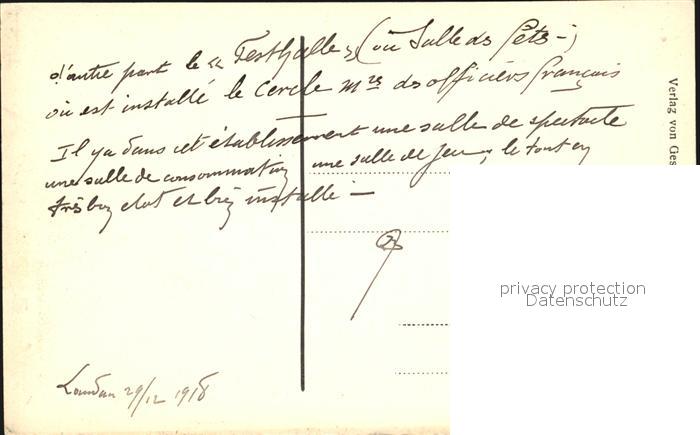 d'autre part le « Festhalle » (ou Salle des Fêts -)
où est installé le Cercle Mre des officiers français
Il y a dans cet établissement une salle de spectacle
une salle de consommation une salle de jeu, le tout en
très bon etat et bien installé —
Landau 29/12 1918
Verlag von Ges
privacy protection
Datenschutz